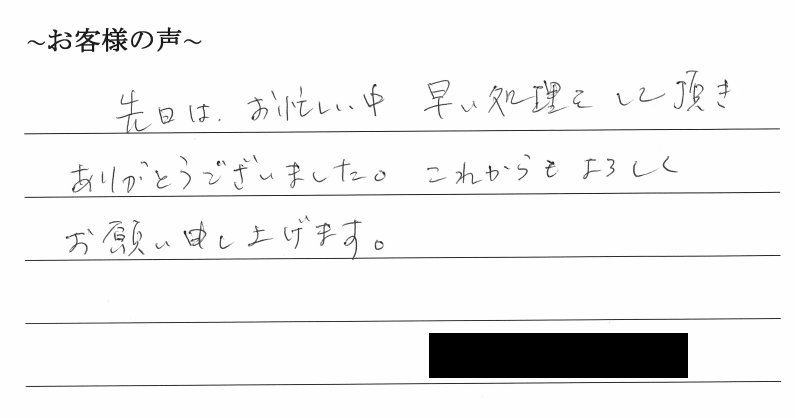 ~お客様の声~
先日は、お忙しい中 早い処理をして頂き
ありがとうございました。これからもよろしく
お願い申し上げます。